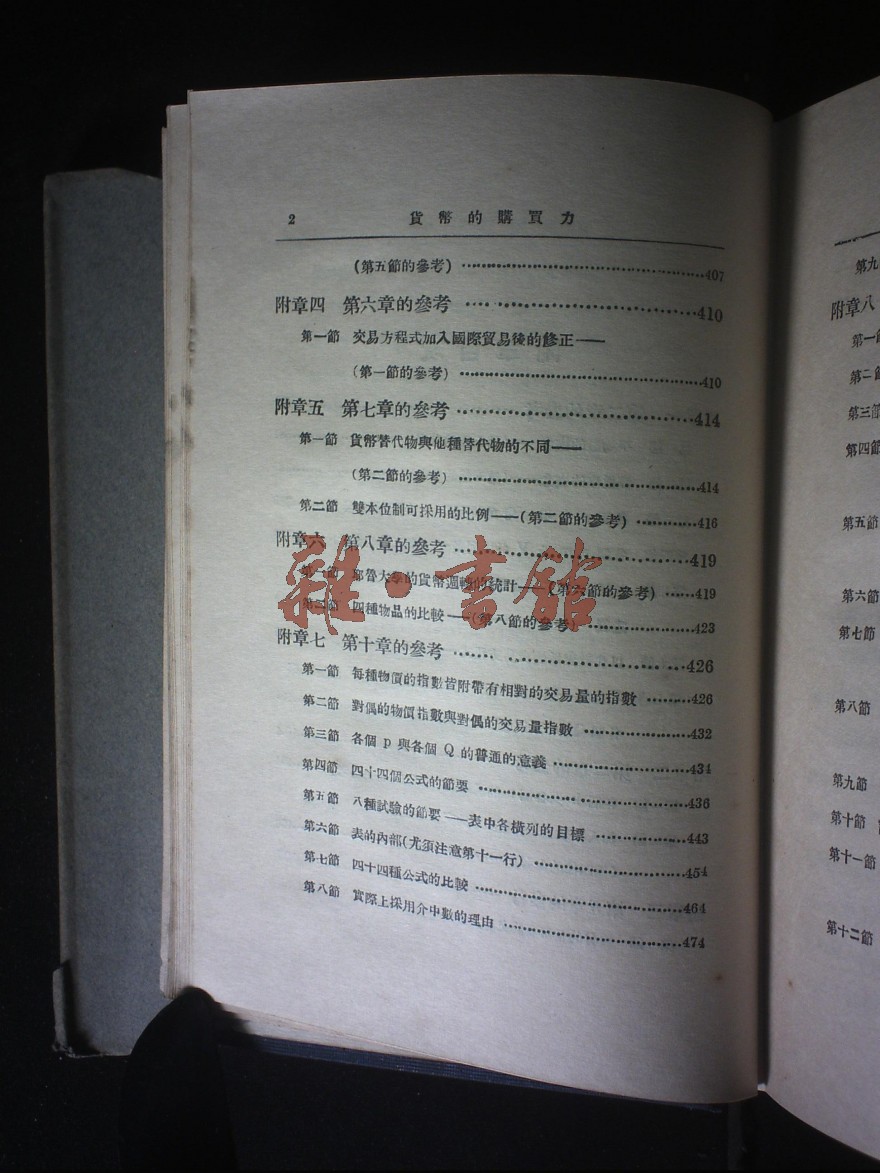 2 貨幣的購買力
(第五節的參考) 407
附章四 第六章的參考 410
第一節 交易方程式加入國際貿易後的修正——
(第一節的參考) 410
附章五 第七章的參考 414
第一節 貨幣替代物與他種替代物的不同——
(第二節的參考) 414
第二節 雙本位制可採用的比例——(第二節的參考) 416
附章六 第八章的參考 419
第一節 耶魯大學的貨幣週轉的統計——(第六節的參考) 419
第二節 四種物品的比較——(第八節的參考) 423
附章七 第十章的參考 426
第一節 每種物價的指數皆附帶有相對的交易量的指數 426
第二節 對偶的物價指數與對偶的交易量指數 432
第三節 各個 p 與各個 Q 的普通的意義 434
第四節 四十四個公式的節要 436
第五節 八種試驗的節要——表中各橫列的目標 443
第六節 表的內部(尤須注意第十一行) 454
第七節 四十四種公式的比較 464
第八節 實際上採用介中數的理由 474
雜·書館
第九
附章八
第一節
第二節
第三節
第四節
第五節
第六節
第七節
第八節
第九節
第十節
第十一節
第十二節